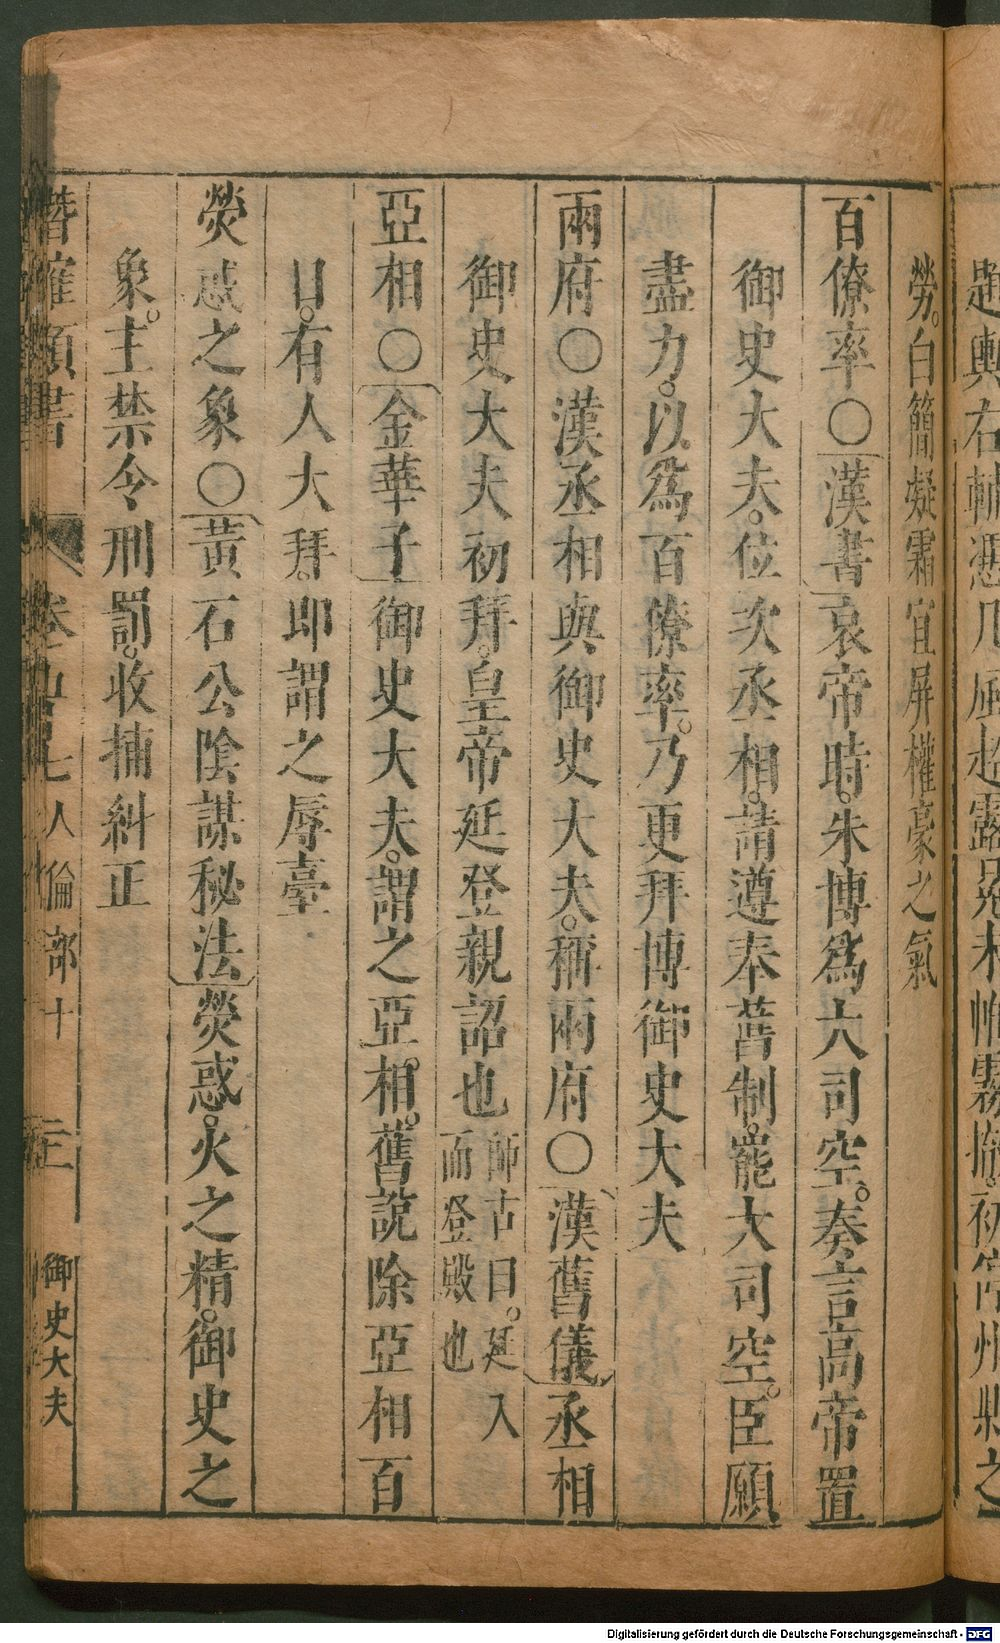 趙輿右輔憑几屈超露冕未惟霧拖初宰州縣之
勞。白簡凝霜宜屏權豪之氣
百僚率〇漢書哀帝時。朱博爲大司空。奏言高帝置
御史大夫。位次丞相。請遵奉舊制。罷大司空。臣願
盡力。以爲百僚率。乃更拜博御史大夫
兩府〇漢丞相與御史大夫。稱兩府〇漢舊儀丞相
御史大夫初拜。皇帝延登親詔也師古曰。延入而登殿也
亞相〇金華子御史大夫。謂之亞相。舊說除亞相百
日。有人大拜。即謂之辱臺
熒惑之象〇黃石公陰謀秘法熒惑。火之精。御史之
象。主禁令刑罰。收捕糾正
潛確類書 卷 七 人倫部十 二十一 御史大夫
Digitalisierung gefördert durch die Deutsche Forschungsgemeinschaft - DFG